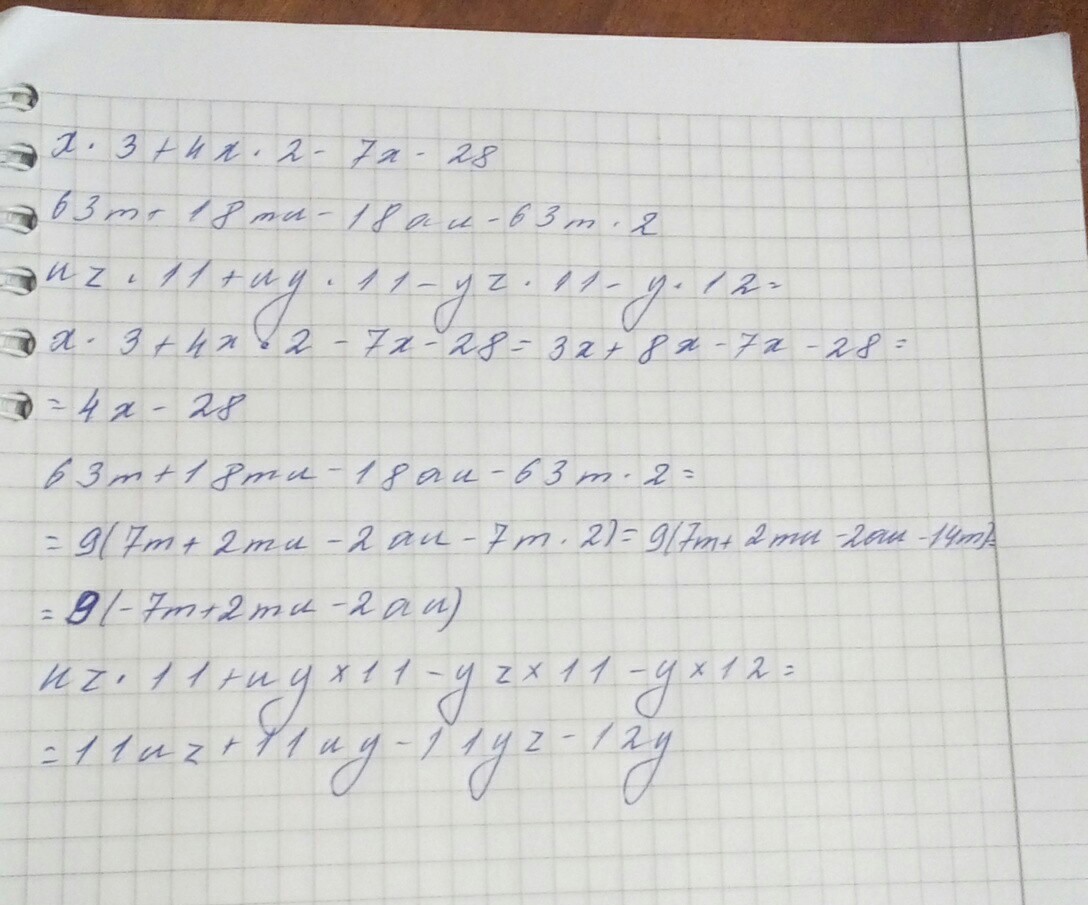 x · 3 + 4x · 2 - 7x - 28
63m + 18mu - 18au - 63m · 2
uz · 11 + uy · 11 - yz · 11 - y · 12 =
x · 3 + 4x · 2 - 7x - 28 = 3x + 8x - 7x - 28 =
= 4x - 28
63m + 18mu - 18au - 63m · 2 =
= 9(7m + 2mu - 2au - 7m · 2) = 9(7m + 2mu - 2au - 14m) =
= 9(-7m + 2mu - 2au)
uz · 11 + uy × 11 - yz × 11 - y × 12 =
= 11uz + 11uy - 11yz - 12y